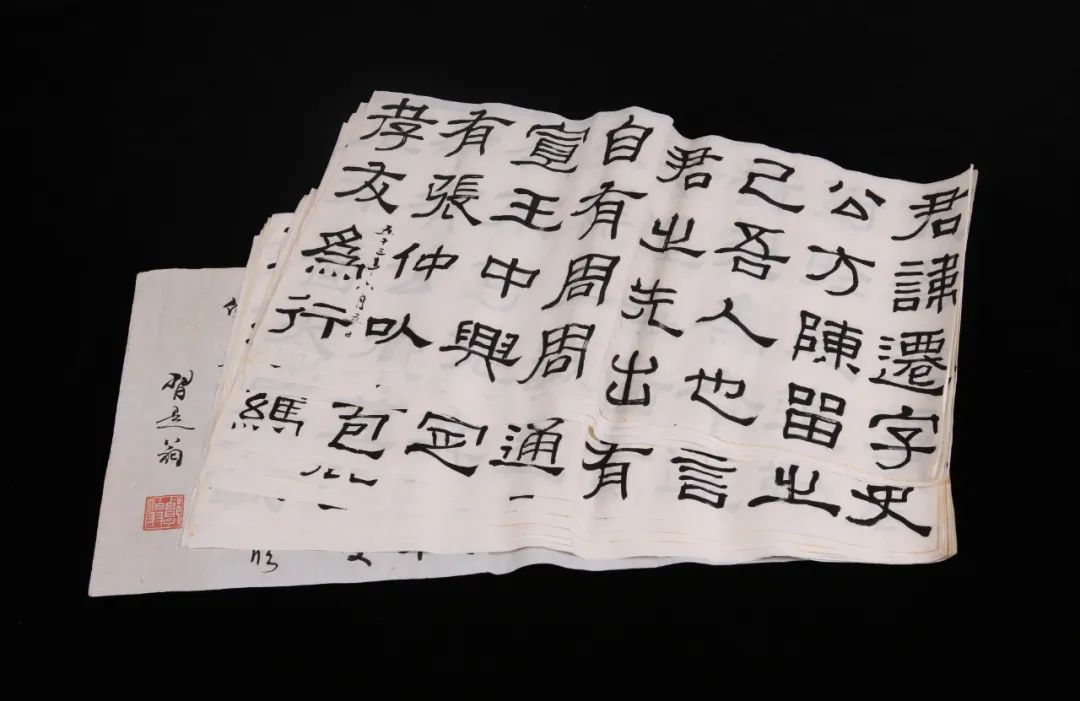 君諱遷字史
公方陳留之
己吾人也言
君之先出有
自有周周通
宣王中興定
有張仲以苞
孝友為行
五十三年六月五
翁